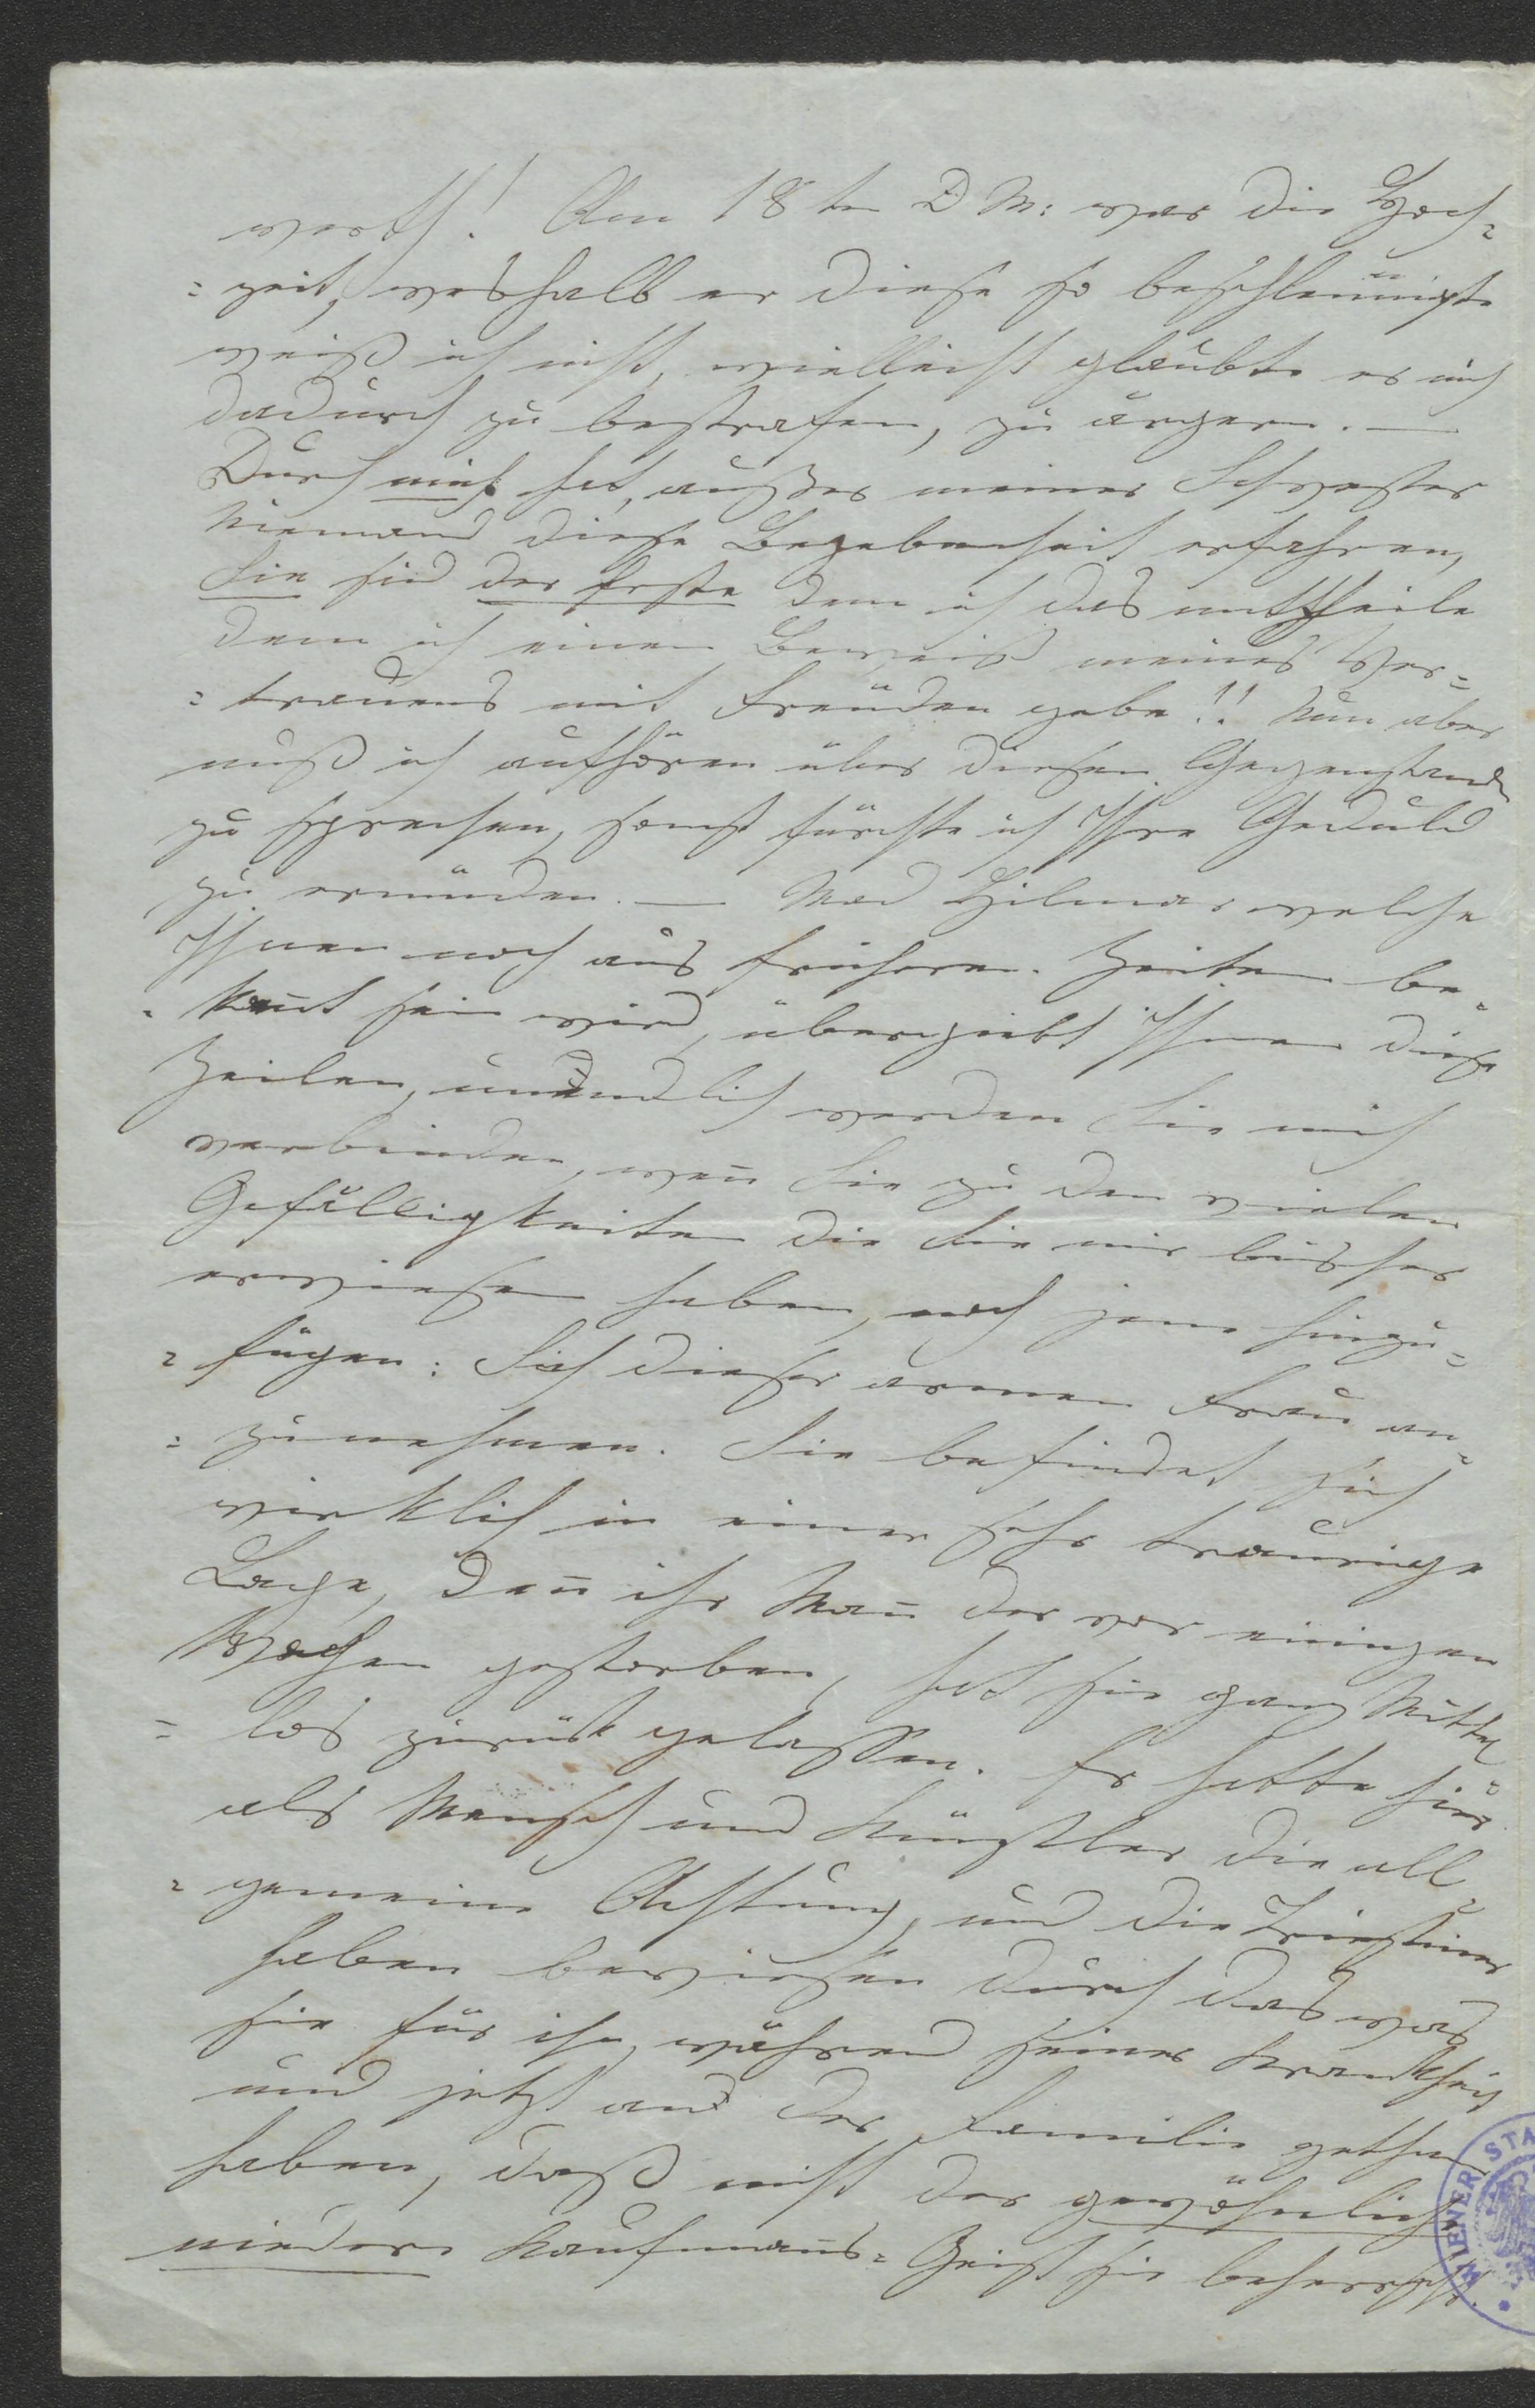 werth! Am 18ten D. M: war die Hoch=
=zeit, weshalb er diese so beschleünigte
weiß ich nicht, vielleicht glaubte er mich
dadurch zu bestrafen, zu ärgern. —
Durch mich hat, außer meiner Schwester
Niemand diese Begebenheit erfahren,
Sie sind der Erste dem ich das mittheile
dem ich einen Beweiß meines Ver=
=trauens mit Freüden gebe!! Nun aber
muß ich aufhören über diesen Gegenstand
zu sprechen, sonst fürchte ich Ihre Geduld
zu ermüden. — Mad Hilmar welche
Ihnen noch aus früheren Zeiten be=
=kannt sein wird, übergiebt Ihnen diese
Zeilen, unendlich werden Sie mich
verbinden, wenn Sie zu den vielen
Gefälligkeiten die Sie mir bisher
erwiesen haben, noch jene hinzu=
=fügen: Sich dieser armen Frau an=
=zunehmen. Sie befindet sich
wirklich in einer sehr traurige
Lage, denn ihr Mann der vor einigen
Wochen gestorben, hat sie ganz Mittel
=los zurück gelassen. Er hatte hier
als Mensch und Künstler die all=
=gemeine Achtung, und die Triestiner
haben bewiesen durch das was
sie für ihn, während seiner Krankheit
und jetzt an der Familie gethan
haben, daß nicht der gewöhnliche
niedere Kaufmanns=Geist sie beherrscht.
WIENER STA